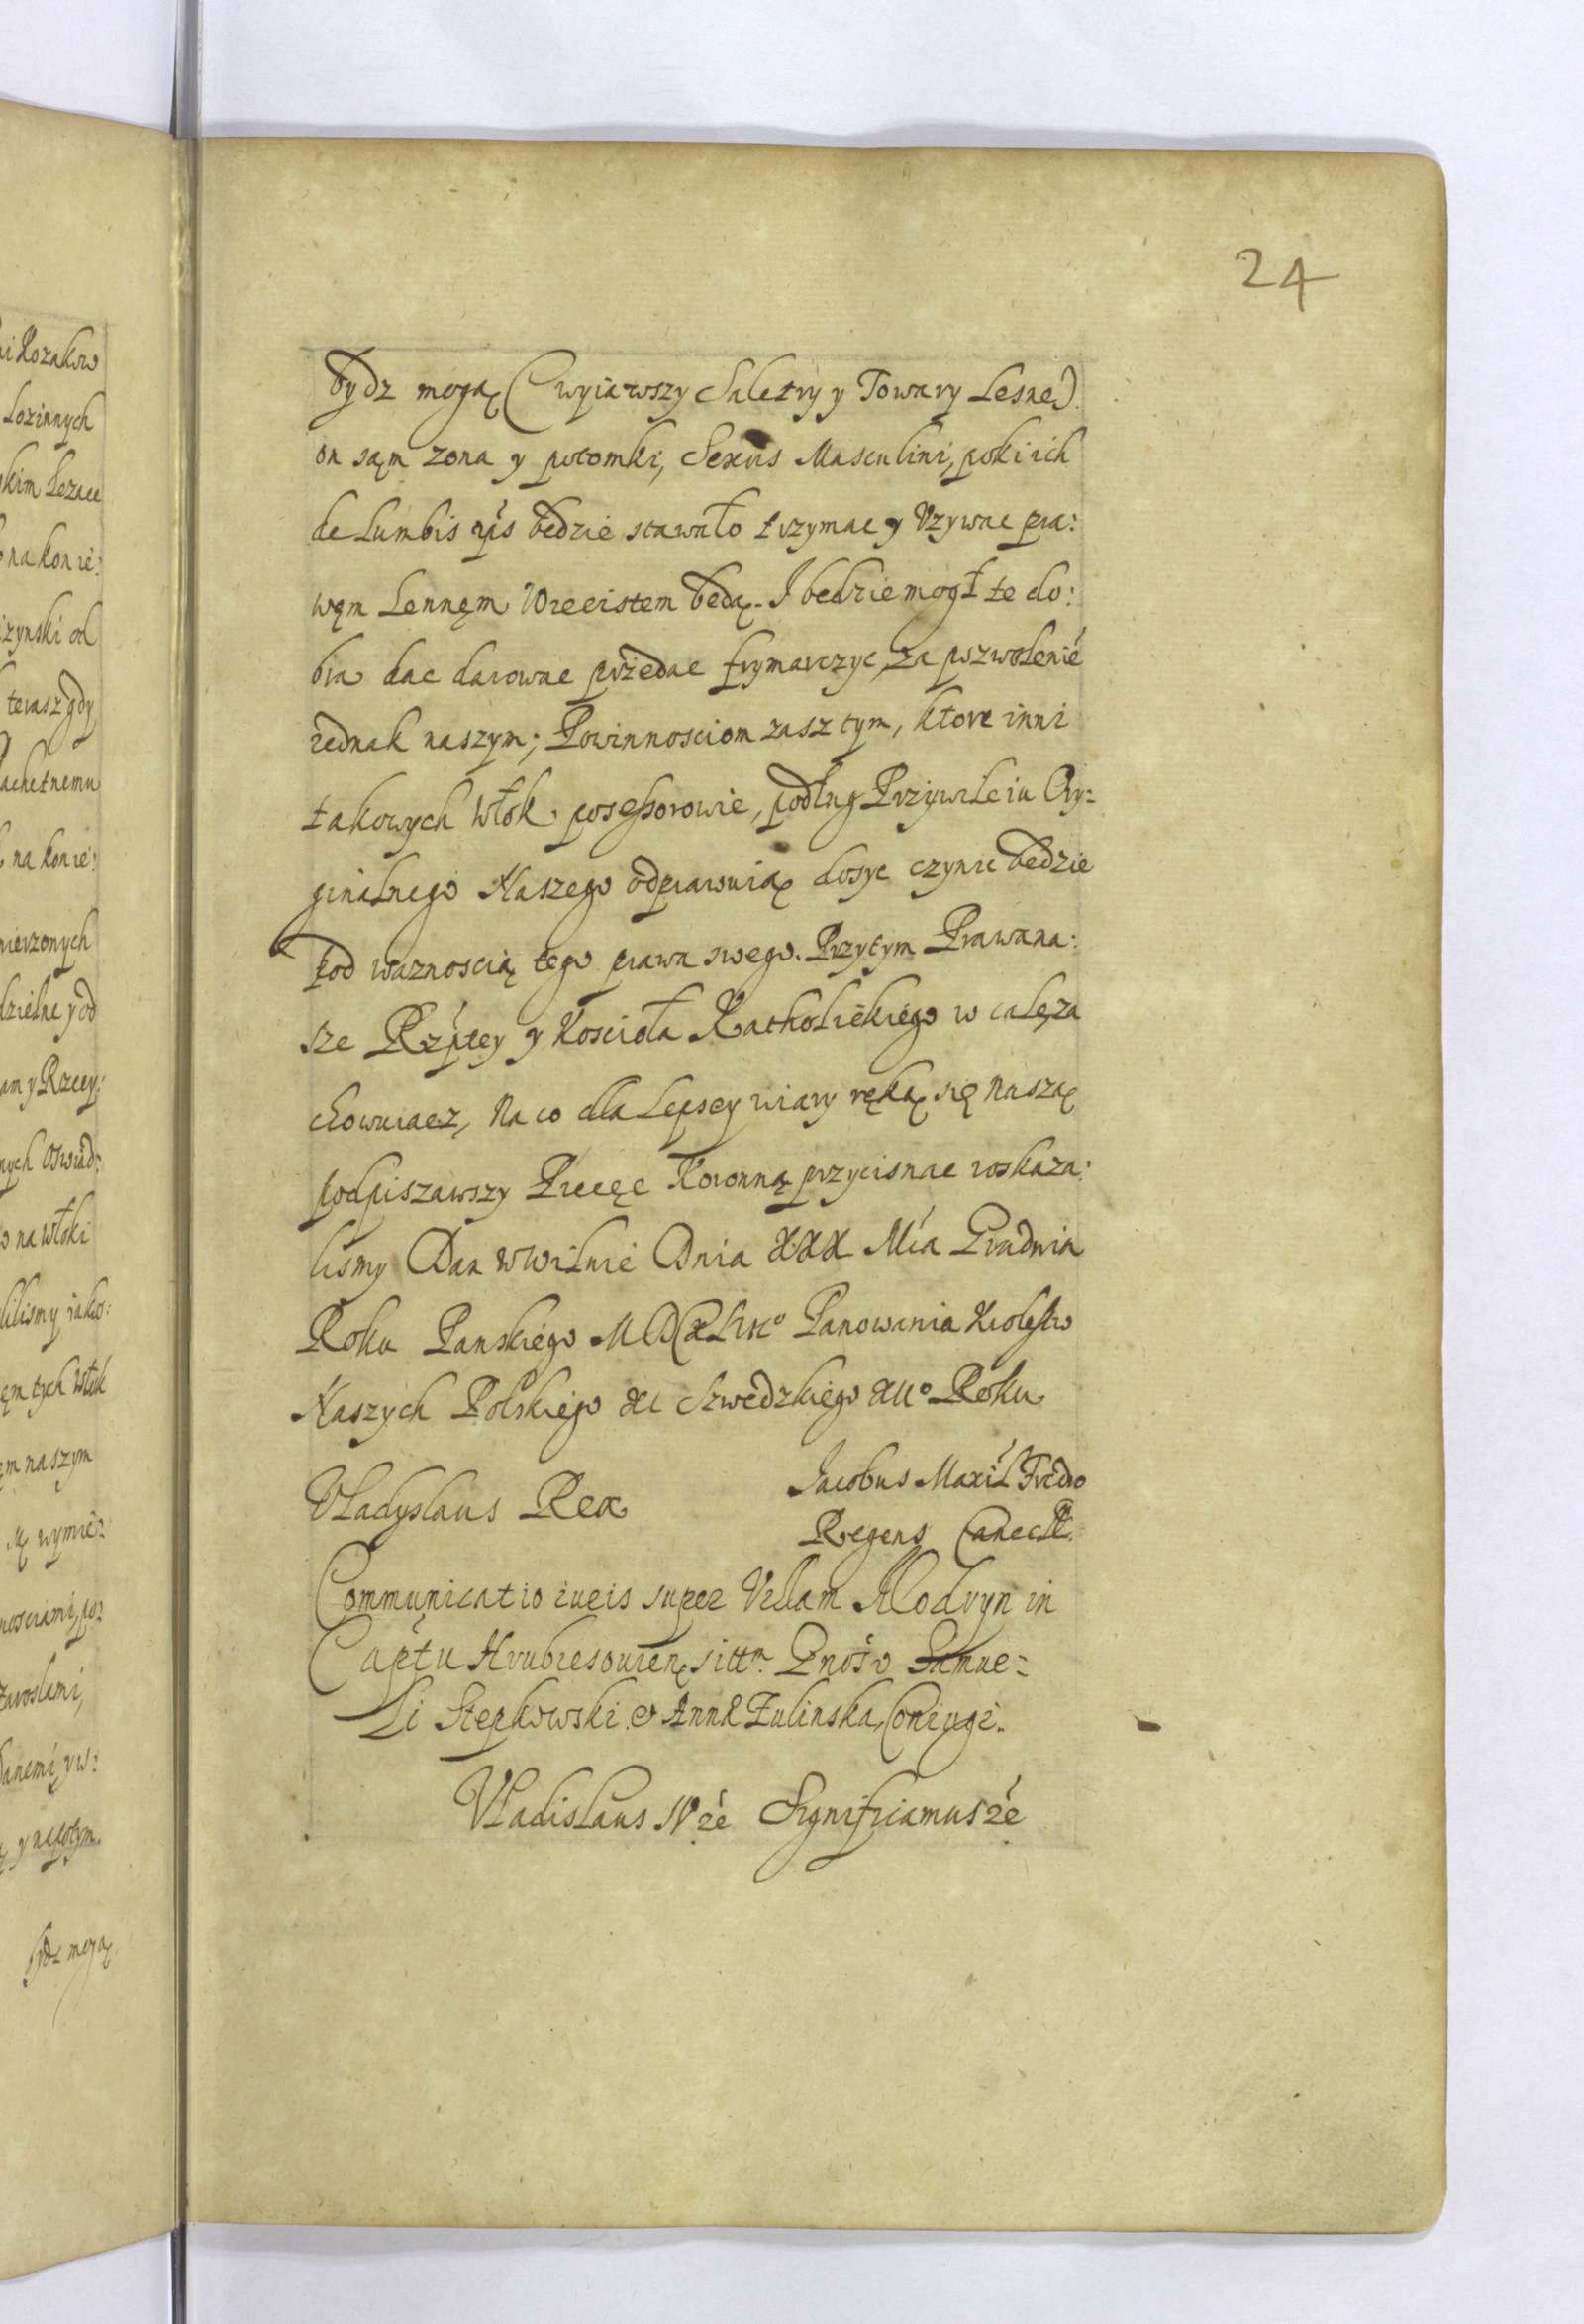 24
bydz mogą (wyiawszy Saletry y Towary Lesne)
on sąm zona y potomki, Sexus Masculini, poki ich
de Lumbis ips będzie stawało trzymac y Vzywac pra:
węm Lennęm Wieczistem będą. I bedzie mogł te do:
bra dac darowac przedac frymarczyc, za pozwolenié
iednak naszym; Powinnosciom zasz tym, ktore inni
takowych Włok posessorowie, podług Przywileiu Ory:
ginalnego Naszego odprawuią dosyc czynic będzie
pod waznoscią tego prawa swego. Przytym Prawa na:
sze Rzptey y Koscioła Katholickiego w całę za
chowuiącz, Na co dla Lepsey wiary ręką się naszą
podpiszawszy Piecęc Koronną przycisnac roskaza:
lismy Dan w Wilnie Dnia XXX Mća Grudnia
Roku Panskiego MDCXLIII° Panowania Krolestw
Naszych Polskiego XI Szwedzkiego XII° Roku
Vladyslaus Rex
Jacobus Maxił Fredro
Regens Cancell.
Communicatio iuris super Villam Modryn in
Capťtu Hrubiesouien. sittm. Gnoso Samue:
Li Stepkowski et Anna Zulinska, Coniugi.
Vladislaus IV zé Significamus zé
ni Kozakow
Lozinnych
skim Lezace
na konie:
izynski od
teraz gdy
lachetnemu
na konie:
mierzonych
dzielne y od
am y Rzecy:
nych Oswiad:
o na Włoki
lilismy iako:
em tych Włok
em naszym
wymie:
nosciami, po:
zaroslami,
danemi, y w:
y na potym.
bydz mogą